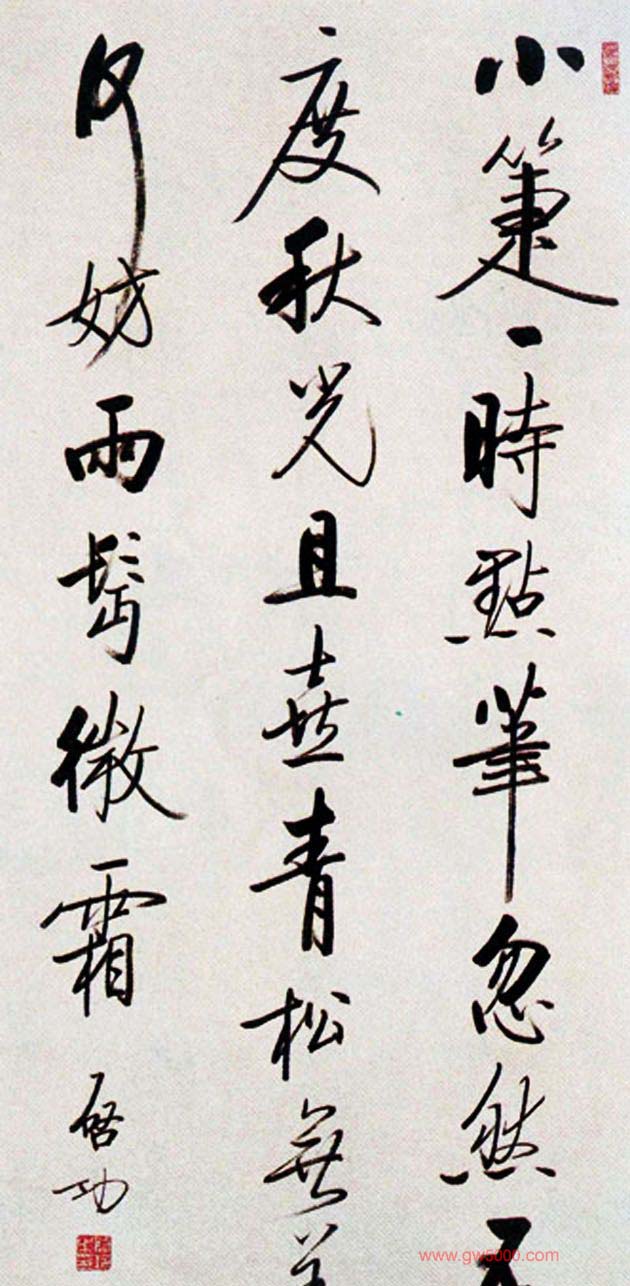 小箑一時點筆忽然
度秋光且喜青松無
何妨兩鬢微霜
啓功
www.gw5000.com